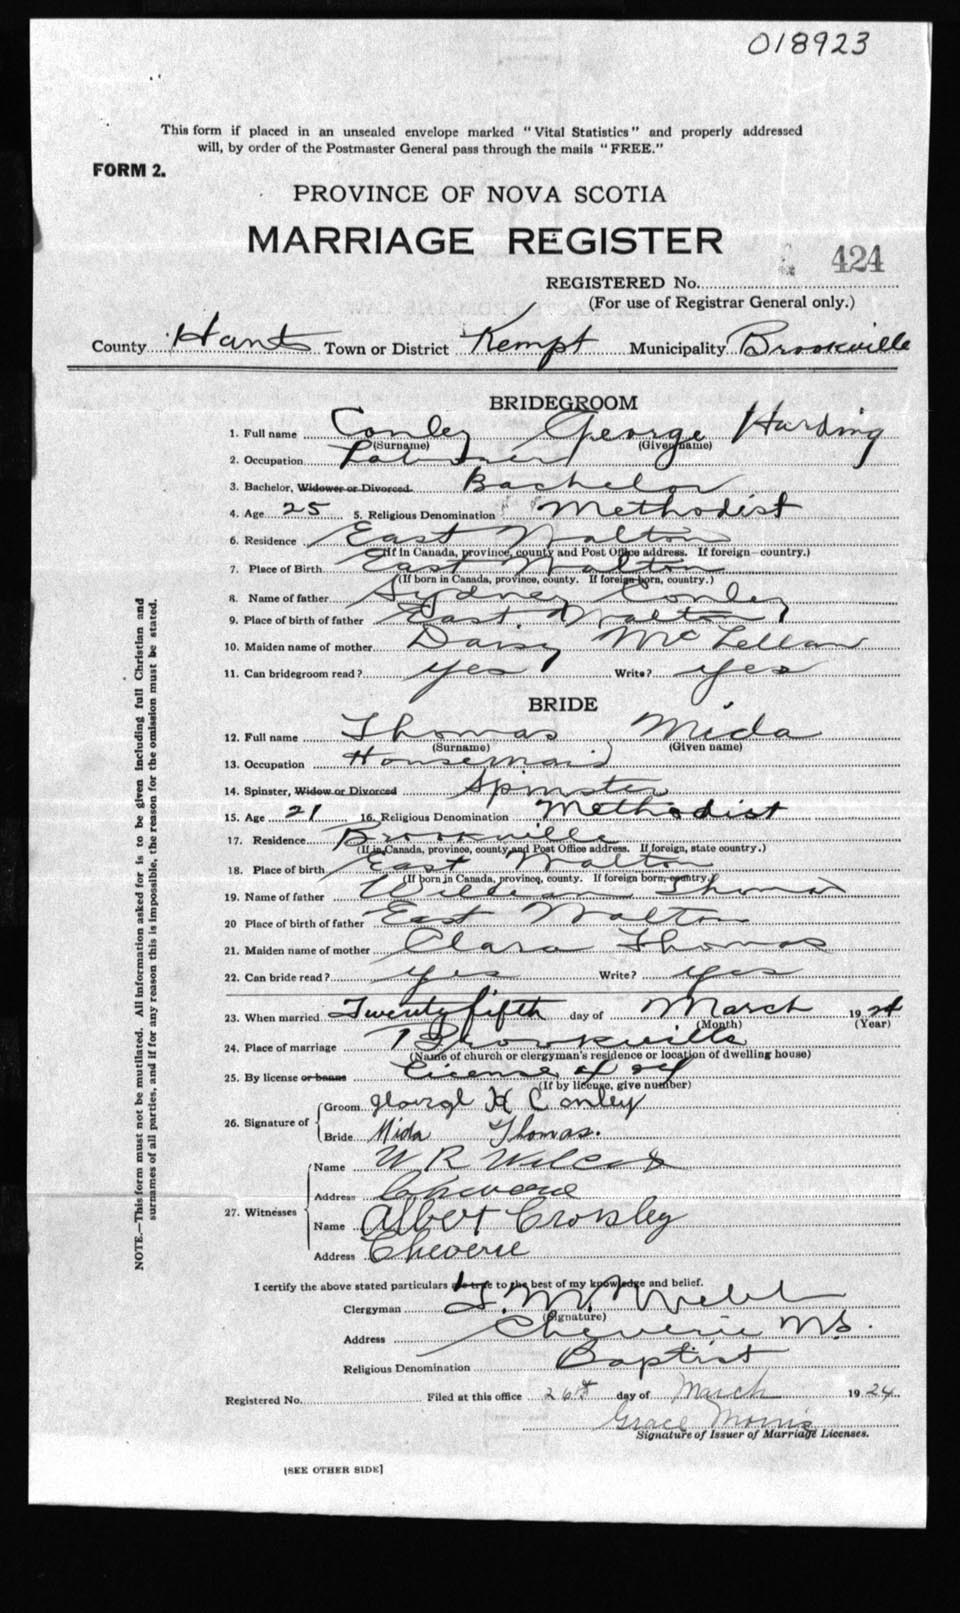 018923
This form if placed in an unsealed envelope marked "Vital Statistics" and properly addressed
will, by order of the Postmaster General pass through the mails "FREE."
FORM 2.
PROVINCE OF NOVA SCOTIA
MARRIAGE REGISTER
REGISTERED No. 424
(For use of Registrar General only.)
County Hants Town or District Kempt Municipality Brookville
BRIDEGROOM
1. Full name Conley George Harding
(Surname) (Given name)
2. Occupation
3. Bachelor, Widower or Divorced Bachelor
4. Age 25 5. Religious Denomination Methodist
6. Residence East Walton
(If in Canada, province, county and Post Office address. If foreign—country.)
7. Place of Birth East Walton
(If born in Canada, province, county. If foreign-born, country.)
8. Name of father Sydney Conley
9. Place of birth of father East Walton
10. Maiden name of mother Daisy McLellan
11. Can bridegroom read? yes Write? yes
BRIDE
12. Full name Thomas Mida
(Surname) (Given name)
13. Occupation Housemaid
14. Spinster, Widow or Divorced Spinster
15. Age 21 16. Religious Denomination Methodist
17. Residence Brookville
(If in Canada, province, county and Post Office address. If foreign, state country.)
18. Place of birth East Walton
(If born in Canada, province, county. If foreign born, country.)
19. Name of father William Thomas
20 Place of birth of father East Walton
21. Maiden name of mother Clara Thomas
22. Can bride read? yes Write? yes
23. When married Twenty fifth day of March 1924
(Month) (Year)
24. Place of marriage Brookville
(Name of church or clergyman's residence or location of dwelling house)
25. By license or banns License
(If by license, give number)
26. Signature of Groom George H Conley
Bride Mida Thomas.
27. Witnesses Name W R Wilcox
Address Cheverie
Name Albert Crossley
Address Cheverie
I certify the above stated particulars are true to the best of my knowledge and belief.
Clergyman Webb
(Signature)
Address Cheverie N.S.
Religious Denomination Baptist
Registered No. Filed at this office 26th day of March 1924
Grace Morris
Signature of Issuer of Marriage Licenses.
[SEE OTHER SIDE]
NOTE.—This form must not be mutilated. All information asked for is to be given including full Christian and
surnames of all parties, and if for any reason this is impossible, the reason for the omission must be stated.